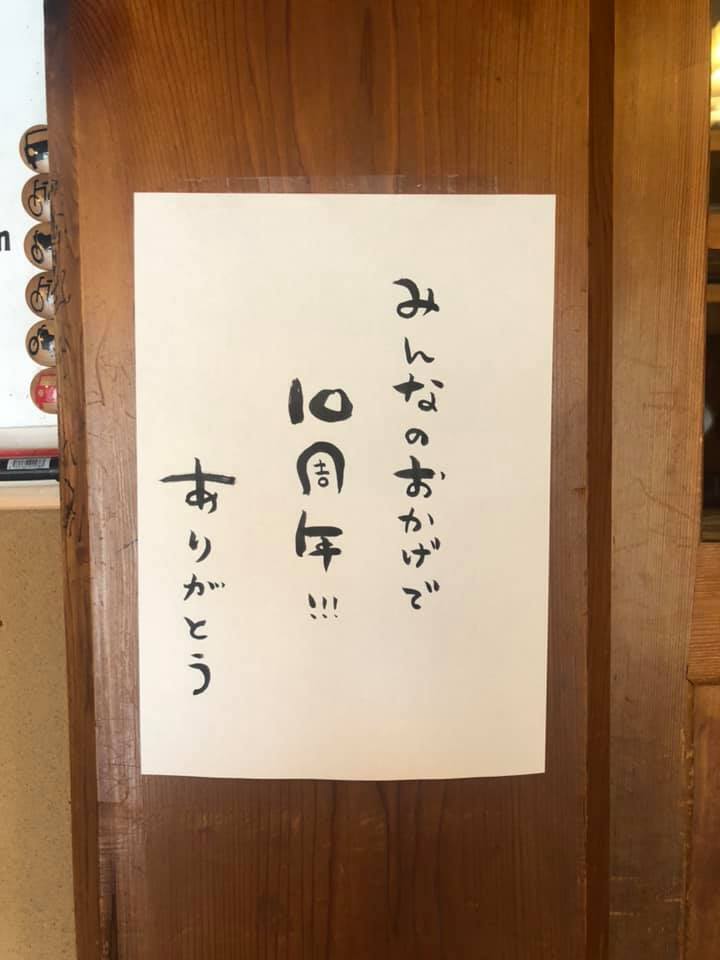 みんなのおかげで
10周年!!!
ありがとう
n